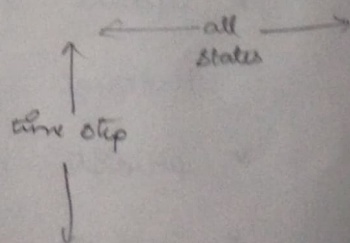 all
states
time step